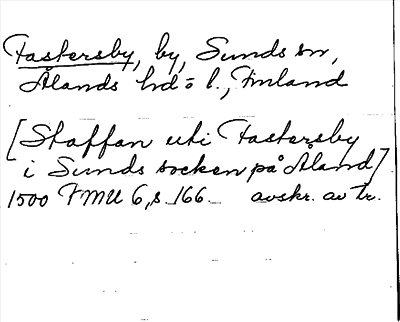 Fastersby, by, Sunds sn,
Ålands hd = l., Finland
[Staffan uti Fastersby
i Sunds socken på Åland]
1500 FMU 6, s. 166. avskr. av tr.